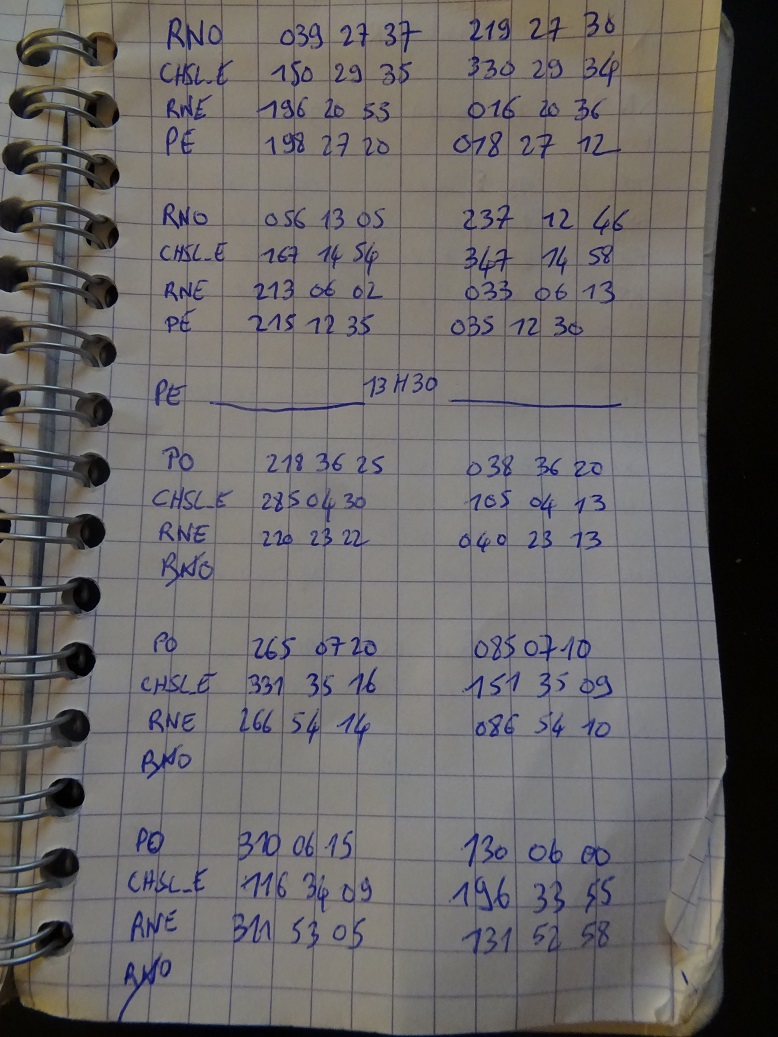 RNO 039 27 37 219 27 30
CHSL_E 150 29 35 330 29 34
RNE 196 20 53 016 20 36
PE 198 27 20 018 27 12
RNO 056 13 05 237 12 46
CHSL_E 167 14 54 347 14 58
RNE 213 06 02 033 06 13
PE 215 12 35 035 12 30
PE 13H30
PO 218 36 25 038 36 20
CHSL_E 285 04 30 105 04 13
RNE 220 23 22 040 23 13
RNO
PO 265 07 20 085 07 10
CHSL E 331 35 16 151 35 09
RNE 266 54 14 086 54 10
RNO
PO 310 06 15 130 06 00
CHSL_E 116 34 09 196 33 55
RNE 311 53 05 131 52 58
RNO